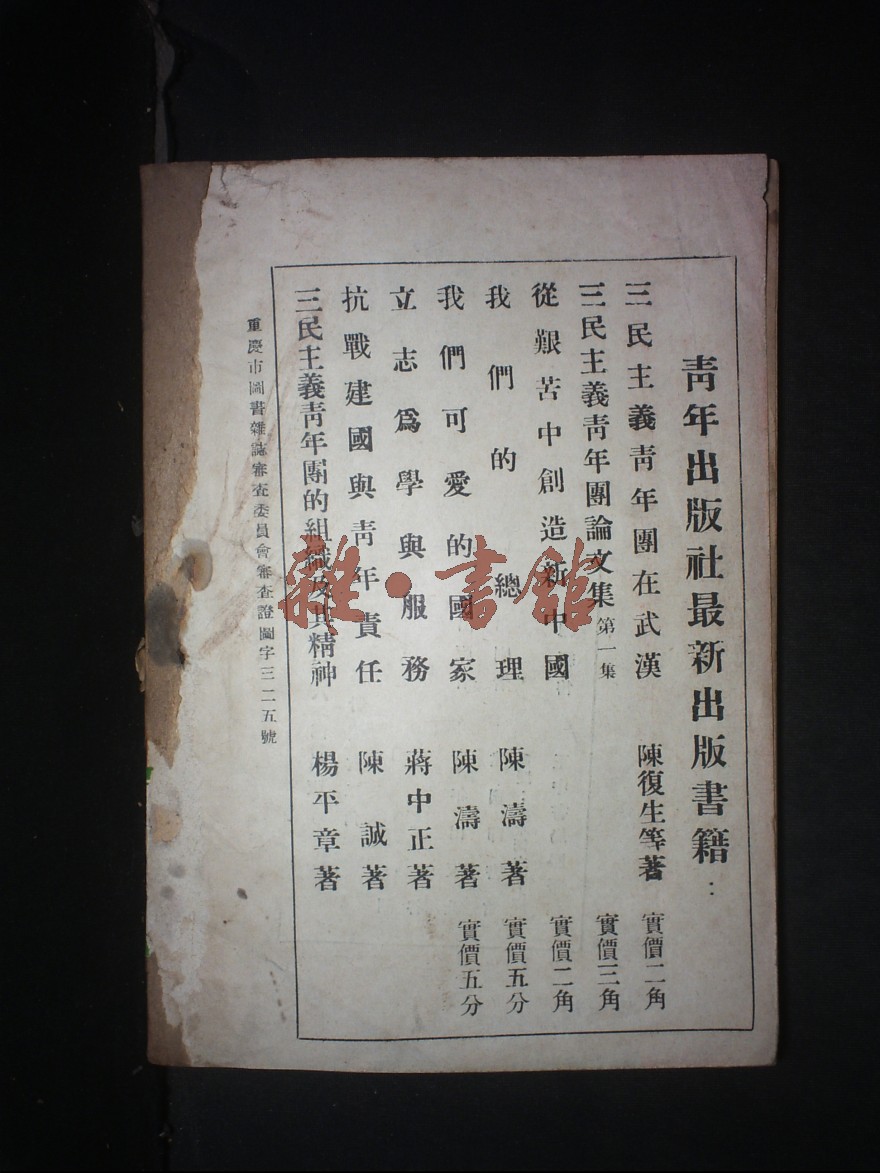 青年出版社最新出版書籍：
三民主義青年團在武漢 陳復生等著 實價二角
三民主義青年團論文集 第一集 實價三角
從艱苦中創造新中國 實價二角
我們的總理 陳濤著 實價五分
我們可愛的國家 陳濤著 實價五分
立志爲學與服務 蔣中正著
抗戰建國與青年責任 陳誠著
三民主義青年團的組織及其精神 楊平章著
重慶市圖書雜誌審查委員會審查證圖字三二五號
雜·書館